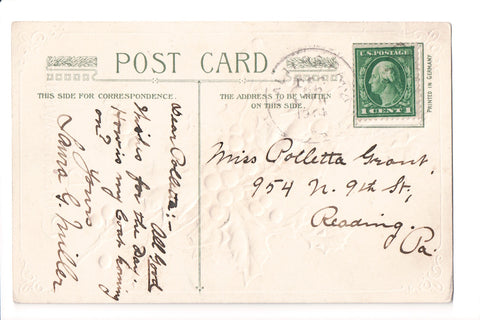 POST CARD
THIS SIDE FOR CORRESPONDENCE.
THE ADDRESS TO BE WRITTEN
ON THIS SIDE.
U.S. POSTAGE
1 CENT 1
PRINTED IN GERMANY
Dear Polletta:- All Good
Wishes for the Day.
How is my Coat coming
on?
Yours
Laura G. Miller
Miss Polletta Grant,
954 N. 9th St,
Reading,
Pa.